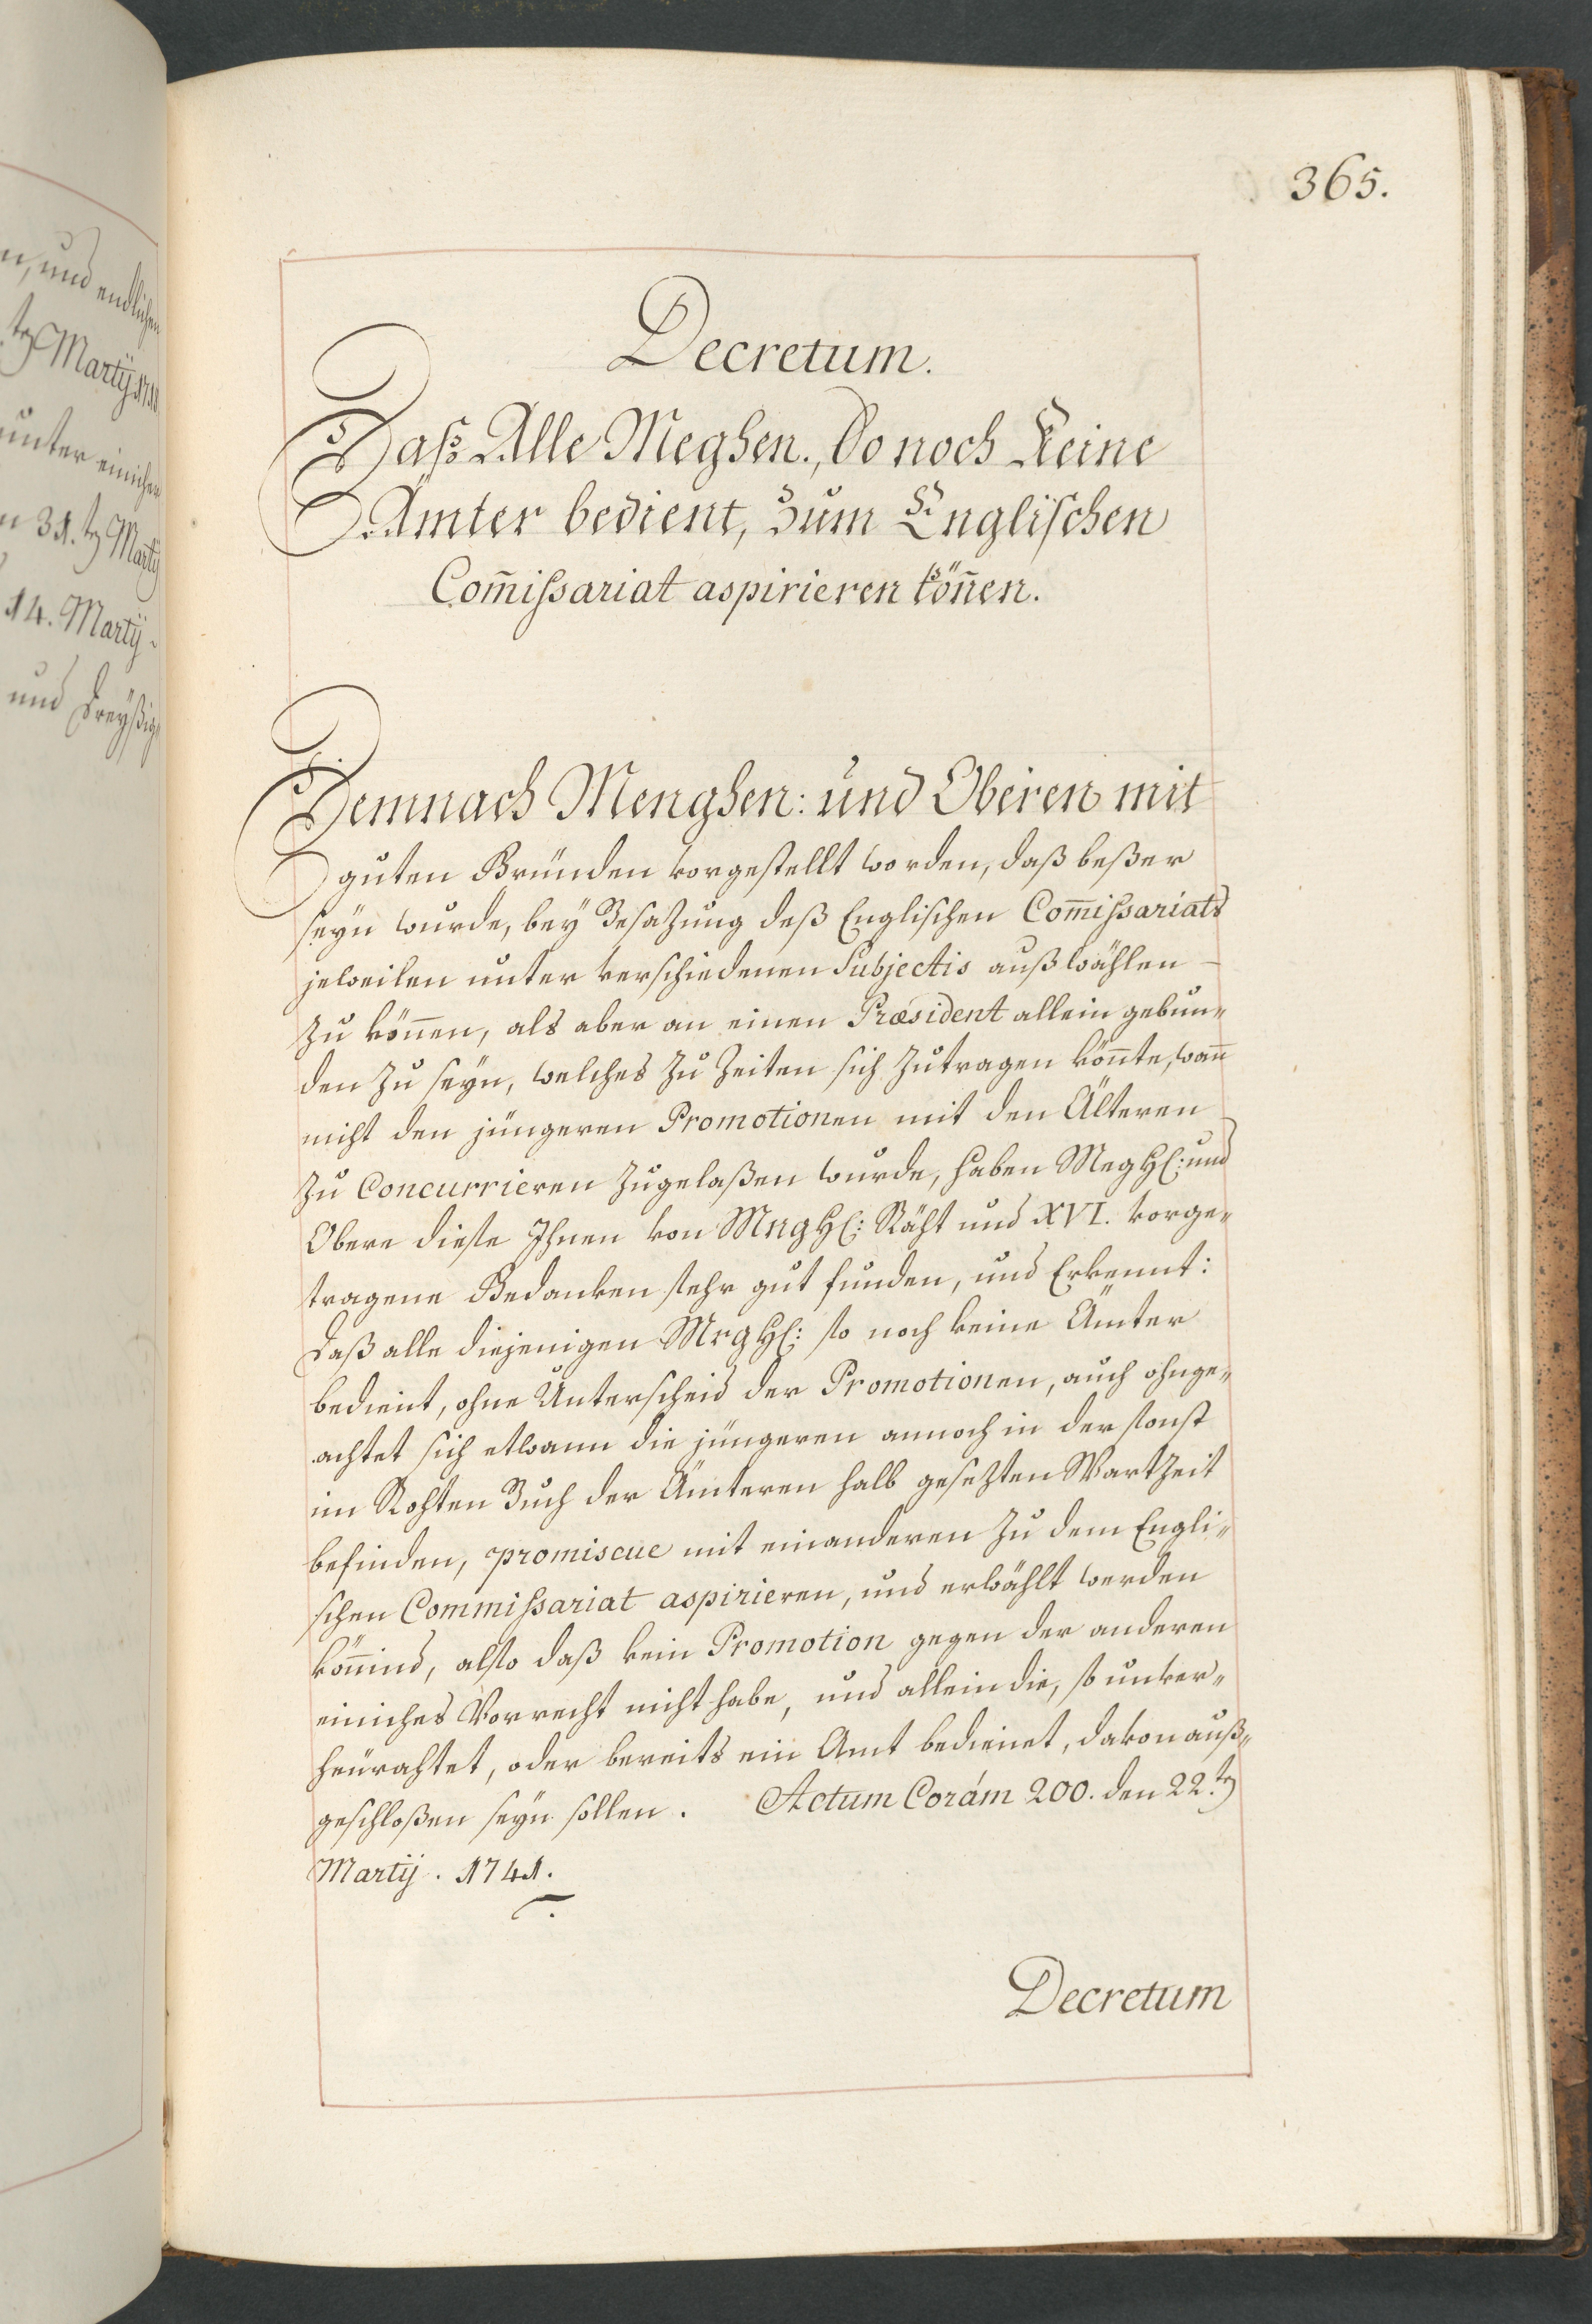 n, und endlichen
tz Martÿ 1718
unter einichen
n 31.tz Martÿ
14. Martÿ.
und dreÿßig
365.
Decretum.
Daß Alle Meghen., So noch Keine
Ämter bedient, Zum Englischen
Com̄ißariat aspirieren kön̄en.
Demnach Menghen: und Oberen mit
guten Gründen vorgestellt worden, daß beßer
seÿn wurde, beÿ Besazung deß Englischen Com̄ißariats
jeweilen unter verschiedenen Subjectis außwählen
zu kön̄en, als aber an einen Præsident allein gebun„
den zu seÿn, welches zu Zeiten sich zutragen kön̄te, wan̄
nicht den jüngeren Promotionen mit den Älteren
zu Concurrieren zugelaßen wurde, haben MegHh: und
Obere diese Ihnen von MngHh: Räht und XVI. vorge„
tragene Gedanken sehr gut funden, und Erkennt:
Daß alle diejenigen MrgHh: so noch keine Ämter
bedient, ohne Unterscheid der Promotionen, auch ohnge„
achtet sich etwann die jüngeren annoch in der sonst
im Rohten Buch der Ämteren halb gesezten Wartzeit
befinden, promiscue mit einanderen zu dem Engli„
schen Commißariat aspirieren, und erwählt werden
kön̄ind, also daß kein Promotion gegen der anderen
einiches Vorrecht nicht habe, und allein die, so unver„
heürahtet, oder bereits ein Amt bedienet, davon auß„
geschloßen seÿn sollen. Actum Corám 200. den 22.tz
Martÿ. 1741.
Decretum